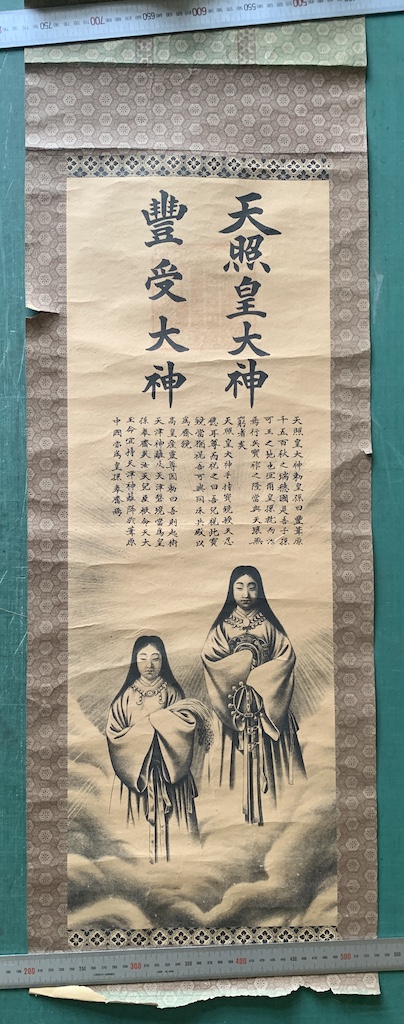 天照皇大神
豐受大神
天照皇大神勅皇孫曰豐葦原
千五百秋之瑞穂國是吾子孫
可王之地也宜爾皇孫就而治
焉行矣寶祚之隆當與天壤無
窮者矣
天照皇大神手持寶鏡授天忍
穂耳尊而祝之曰吾兒視此寶
鏡當猶視吾可與同床共殿以
為齋鏡
高皇産靈尊因勅曰吾則起樹
天津神籬及天津磐境當為皇
孫奉齋矣汝天兒屋根命天太
玉命宜持天津神籬降於葦原
中國亦為皇孫奉齋焉
750 700 600 550 500
200 300 400 500